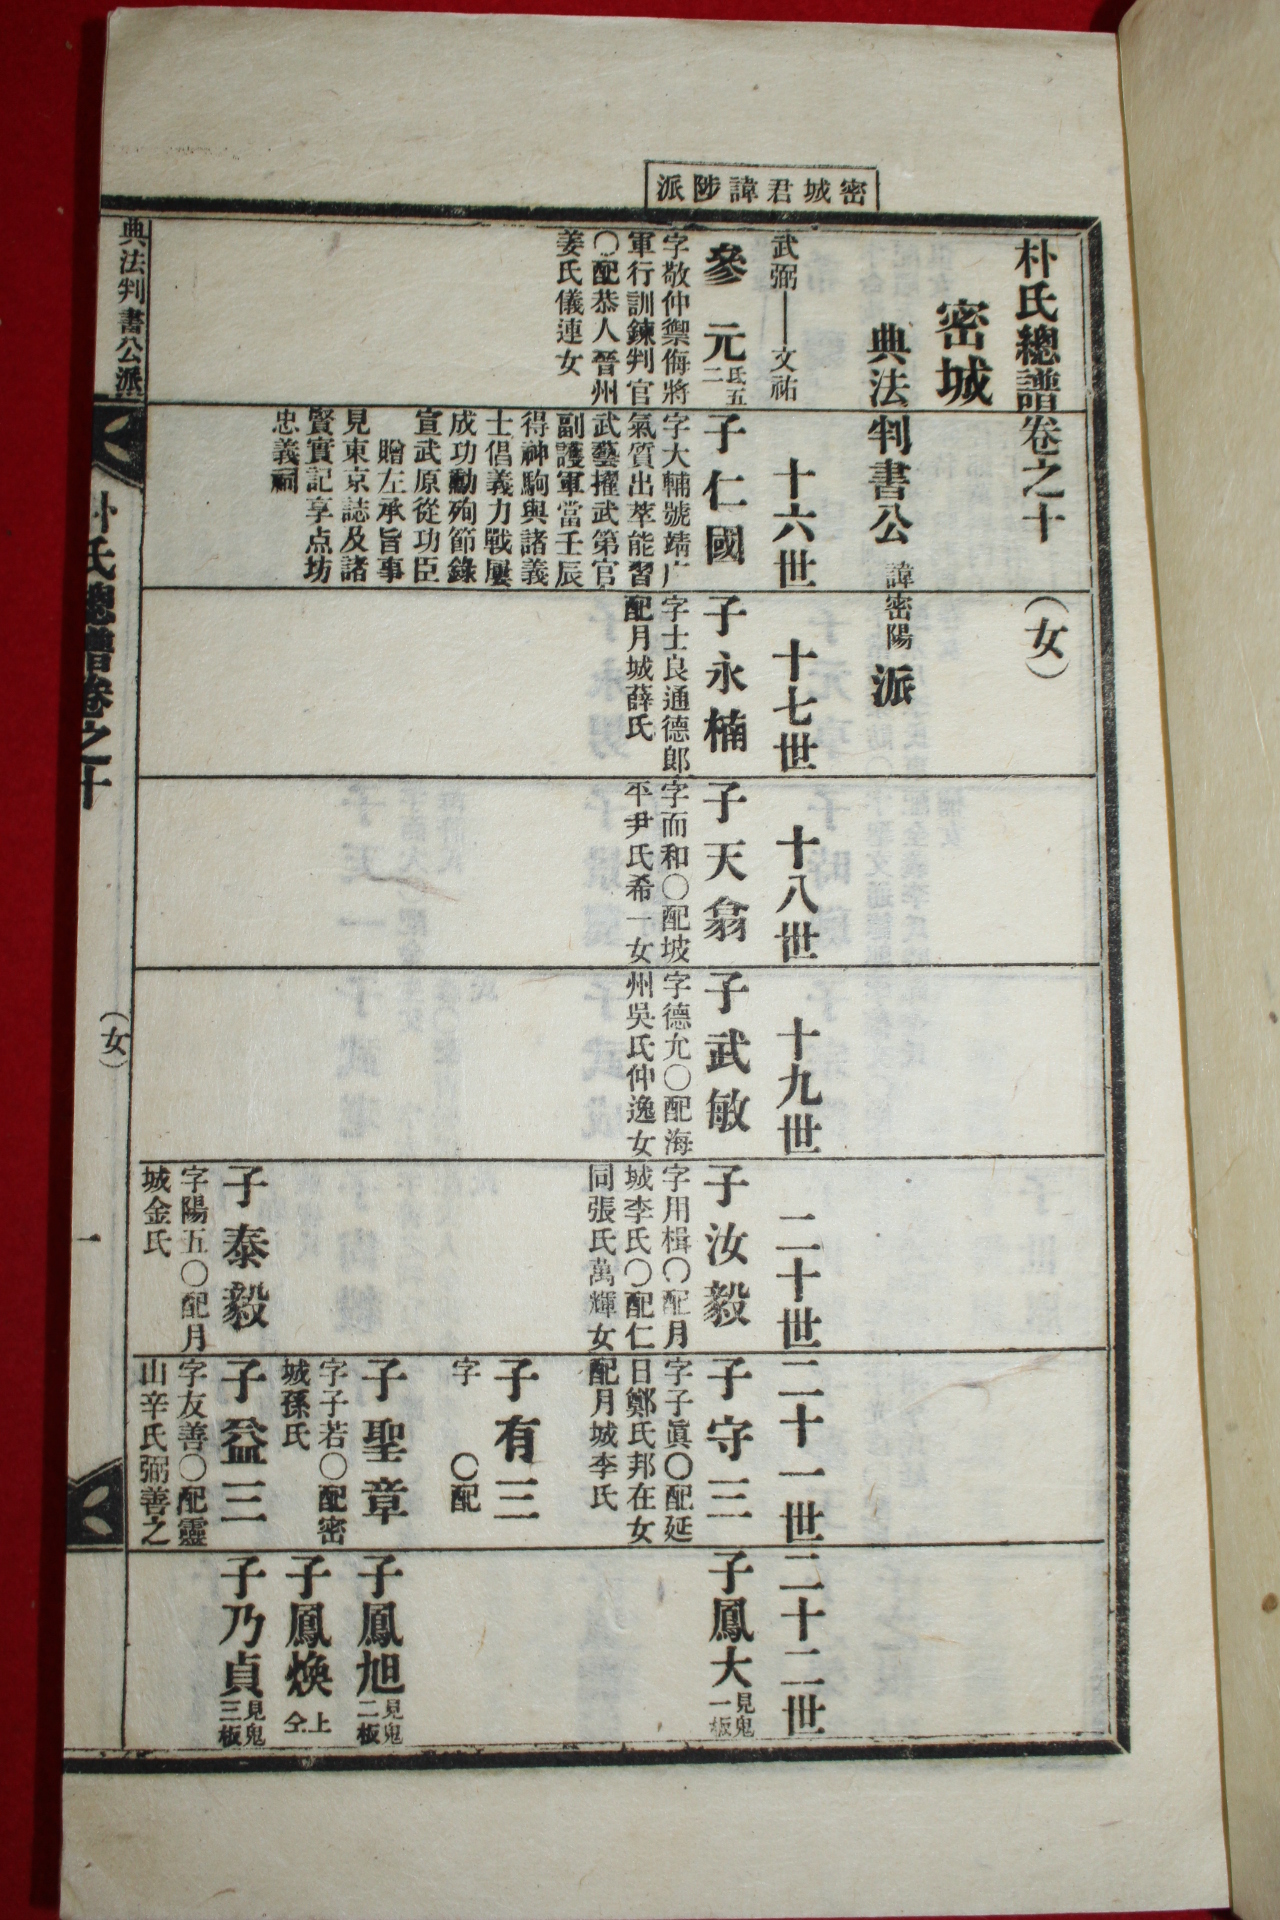 密城君諱陟派
朴氏總譜卷之十 (女)
密城
典法判書公諱密陽派
武弼—文祐
十六世
十七世
十八世
十九世
二十世
二十一世
二十二世
參元 氐五二
字敬仲禦侮將
軍行訓鍊判官
〇配恭人晉州
姜氏儀連女
子仁國
字大輔號靖广
氣質出萃能習
武藝擢武第官
副護軍當壬辰
得神駒與諸義
士倡義力戰屢
成功勳殉節錄
宣武原從功臣
贈左承旨事
見東京誌及諸
賢實記享点坊
忠義祠
子永楠
字士良通德郞
配月城薛氏
子天翕
字而和〇配坡
平尹氏希一女
子武敏
字德允〇配海
州吳氏仲逸女
子汝毅
字用楫〇配月
城李氏〇配仁
同張氏萬輝女
子泰毅
字陽五〇配月
城金氏
子守三
字子眞〇配延
日鄭氏邦在女
配月城李氏
子有三
字 〇配
子聖章
字子若〇配密
城孫氏
子益三
字友善〇配靈
山辛氏弼善之
子鳳大 見鬼一板
子鳳旭 見鬼二板
子鳳煥 上仝
子乃貞 見鬼三板
典法判書公派
朴氏總譜卷之十
(女)
一